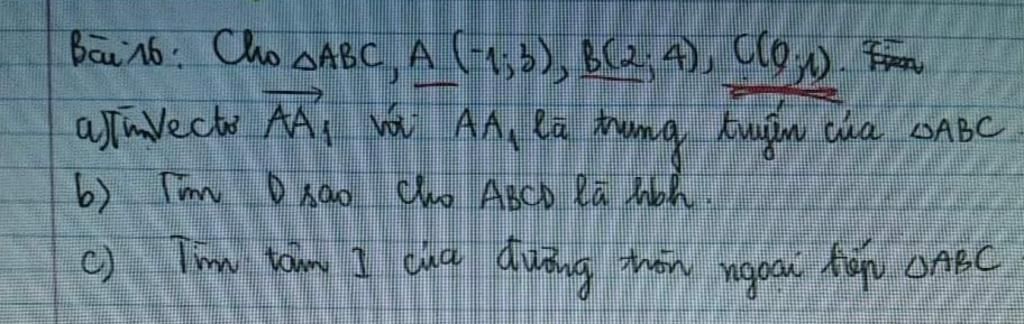 Bài 16: Cho △ABC, A (-1;3), B(2;4), C(0;1). Tìm
a) Tìm Vectơ AA₁ với AA₁ là trung tuyến của △ABC
b) Tìm D sao cho ABCD là hbh.
c) Tìm tâm I của đường tròn ngoại tiếp △ABC